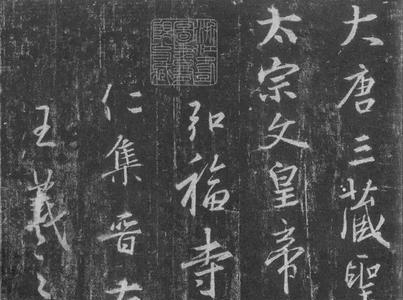 大唐三藏聖
太宗文皇帝
弘福寺
仁集晉右
王羲之